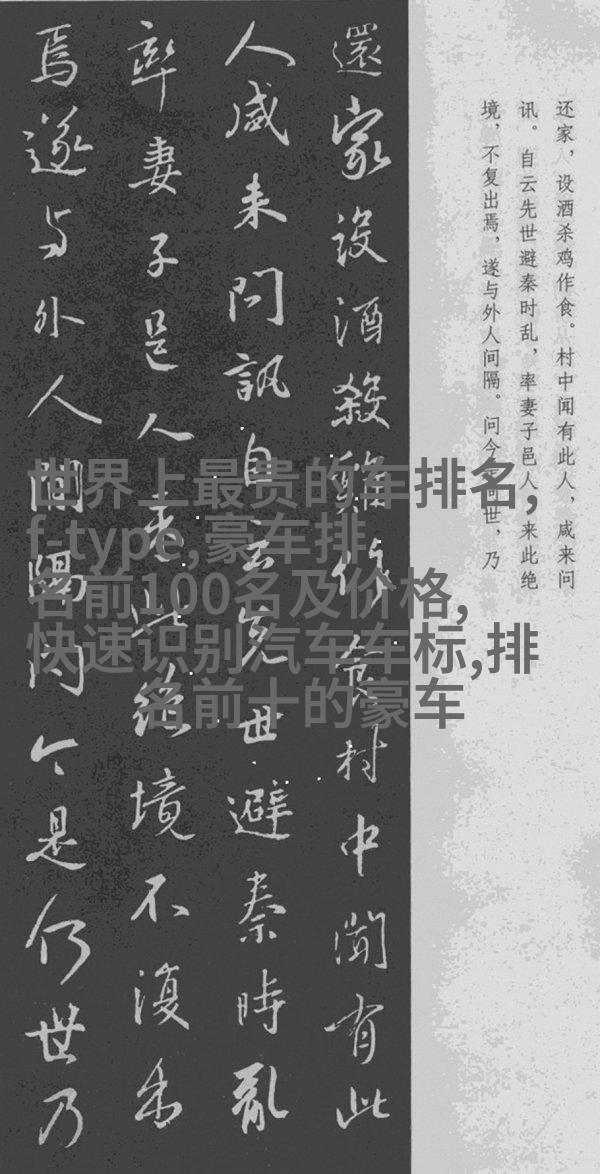 还家，设酒杀鸡作食。村中闻有此人，咸来问
讯。自云先世避秦时乱，率妻子邑人来此绝
境，不复出焉，遂与外人间隔。问今是何世，乃
還家設酒殺雞作食村中聞有此
人咸来問訊自云先世避秦時亂
率妻子邑人来此絶境不復出
焉遂与外人間隔問今是何世乃
世界上最贵的车排名,
f-type,豪车排
名前100名及价格,
快速识别汽车车标,排
名前十的豪车